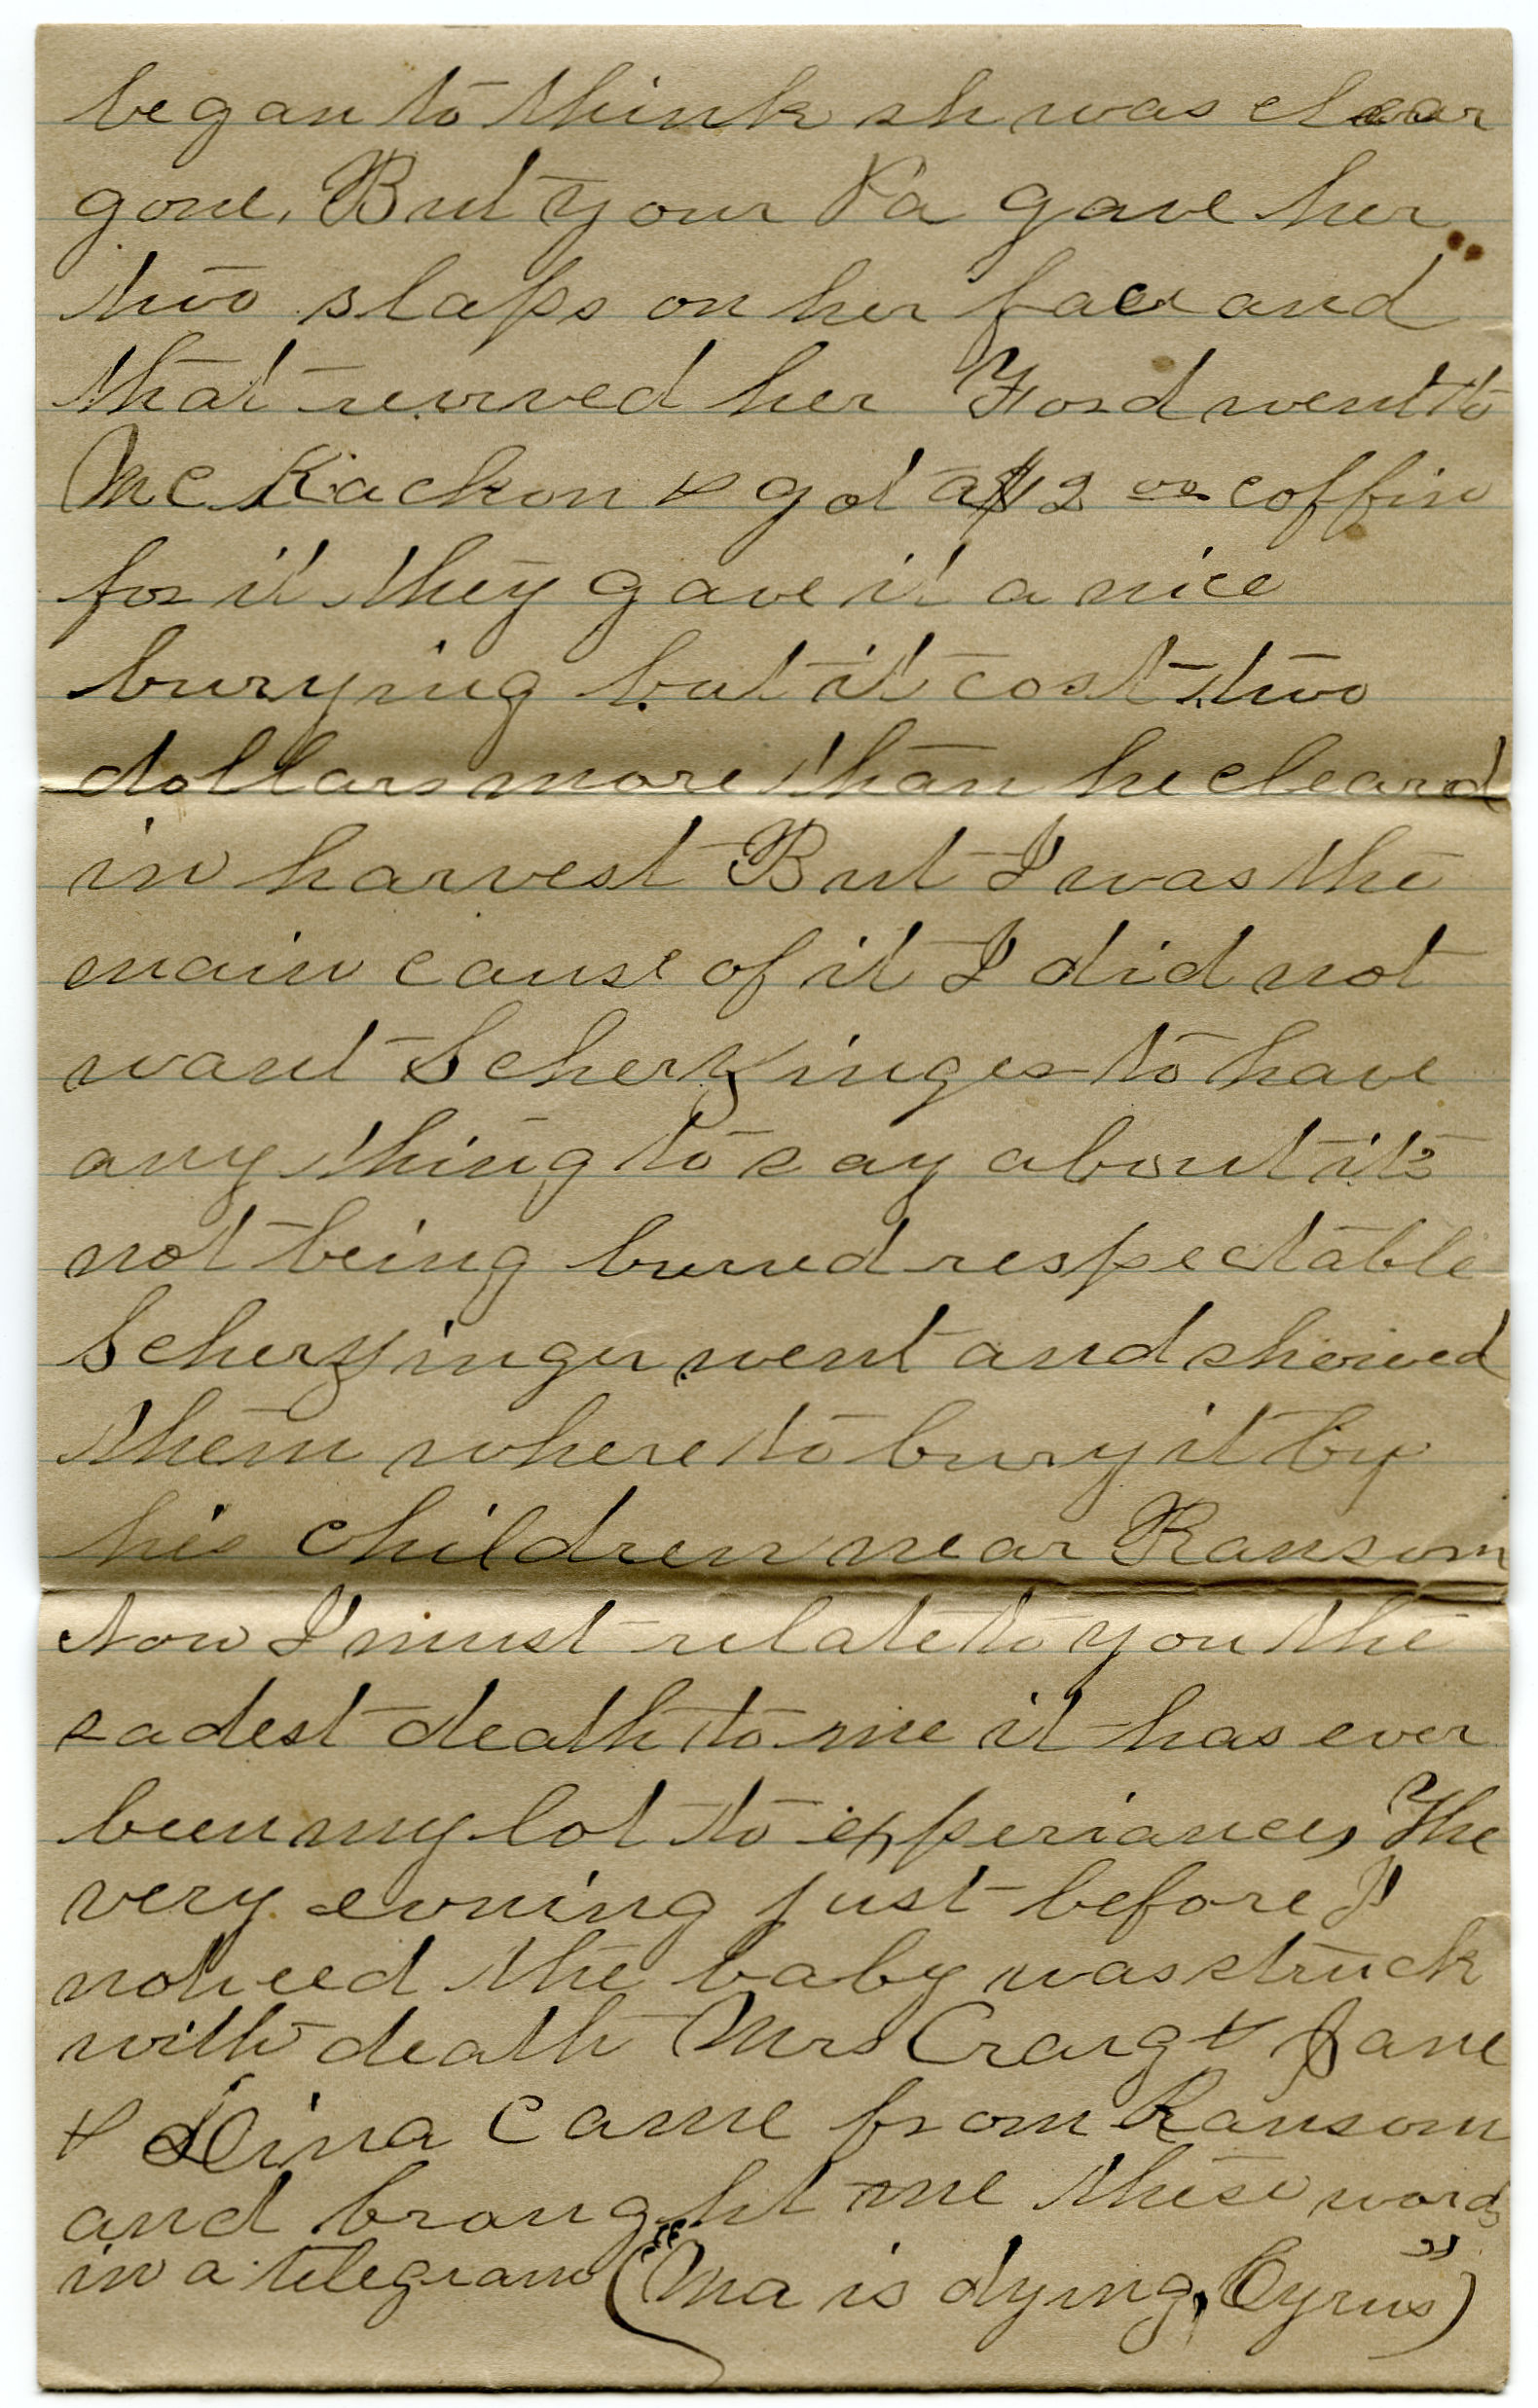 began to think sh was clear
gone, But your Pa gave her
two slaps on her face and
that revived her Ford went to
McKackon & got a $12 00 coffin
for it they gave it a nice
burying but it cost two
dollars more than he cleard
in harvest But I was the
main cause of it I did not
want Scherzinger to have
any thing to say about its
not being buried respectable
Scherzinger went and showed
them where to bury it by
his children near Ransom
Now I must relate to you the
sadest death to me it has ever
been my lot to experiance, The
very evning just before I
noticed the baby was struck
with death Mrs Craig & Jane
& Dina came from Ransom
and brought me these words
in a telegram ("Ma is dying, Cyrus")